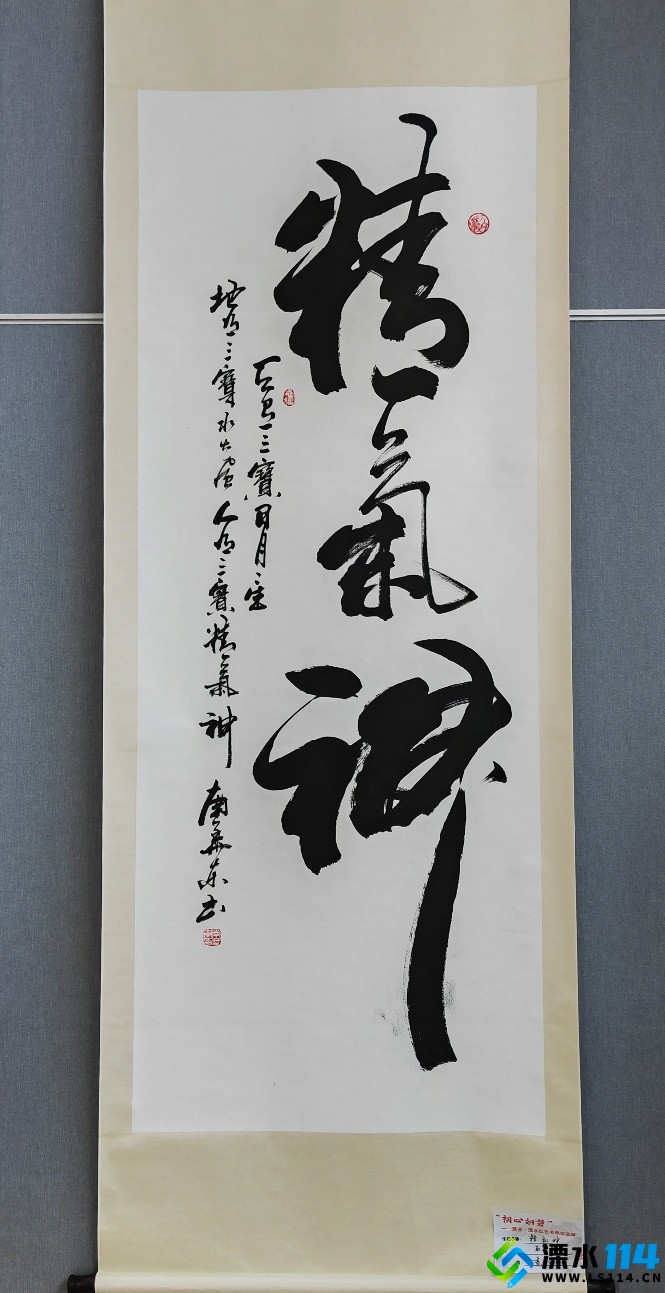 精氣神
天有三寶日月星
地有三寶水火風人有三寶精氣神
東書
"初心如磐"
精氣神
溧水114
WWW.LS114.CN